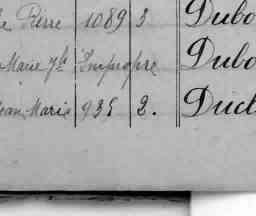 le Pierre 1089 3 Dubo
Marie Impropre Dubo
Jean Marie 935 2. Ducl